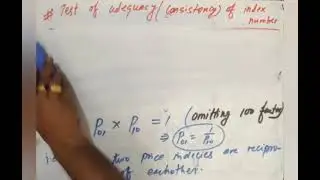 # Test of adequacy (consistency) of index
number
P₀₁ × P₁₀ = 1 (omitting 100 factor)
⇒ P₀₁ = 1/P₁₀
i.e. two price indicies are recipro
of eachother.